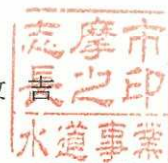 吉
志摩市
長之印
水道事業